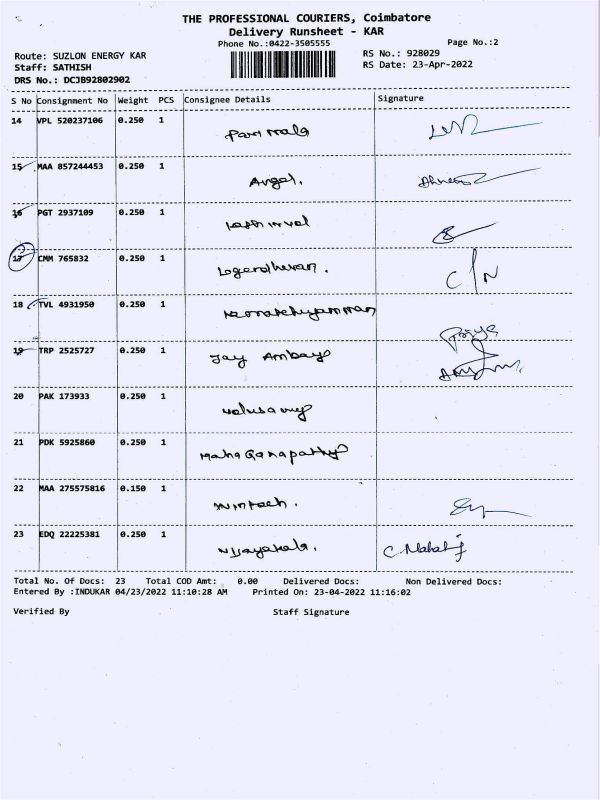 THE PROFESSIONAL COURIERS, Coimbatore
Delivery Runsheet - KAR
Phone No.:0422-3505555
Page No.:2
Route: SUZLON ENERGY KAR
RS No.: 928029
Staff: SATHISH
RS Date: 23-Apr-2022
DRS No.: DCJB92802902
S No Consignment No Weight PCS Consignee Details Signature
14 VPL 520237106 0.250 1 Parimala
15 MAA 857244453 0.250 1 Angel.
16 PGT 2937109 0.250 1
17 CMM 765832 0.250 1 C/N
18 TVL 4931950 0.250 1 Priya
19 TRP 2525727 0.250 1 Jay Ambay
20 PAK 173933 0.250 1 Velusamy
21 PDK 5925860 0.250 1 Maha Ganapathy
22 MAA 275575816 0.150 1
23 EDQ 22225381 0.250 1 Vijayakala.
Total No. Of Docs: 23 Total COD Amt: 0.00 Delivered Docs: Non Delivered Docs:
Entered By :INDUKAR 04/23/2022 11:10:28 AM Printed On: 23-04-2022 11:16:02
Verified By Staff Signature